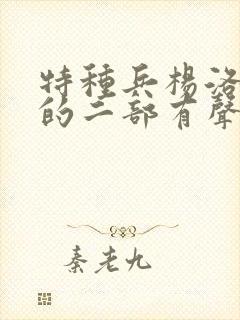 特種兵楊洛
的二部有聲
秦老九